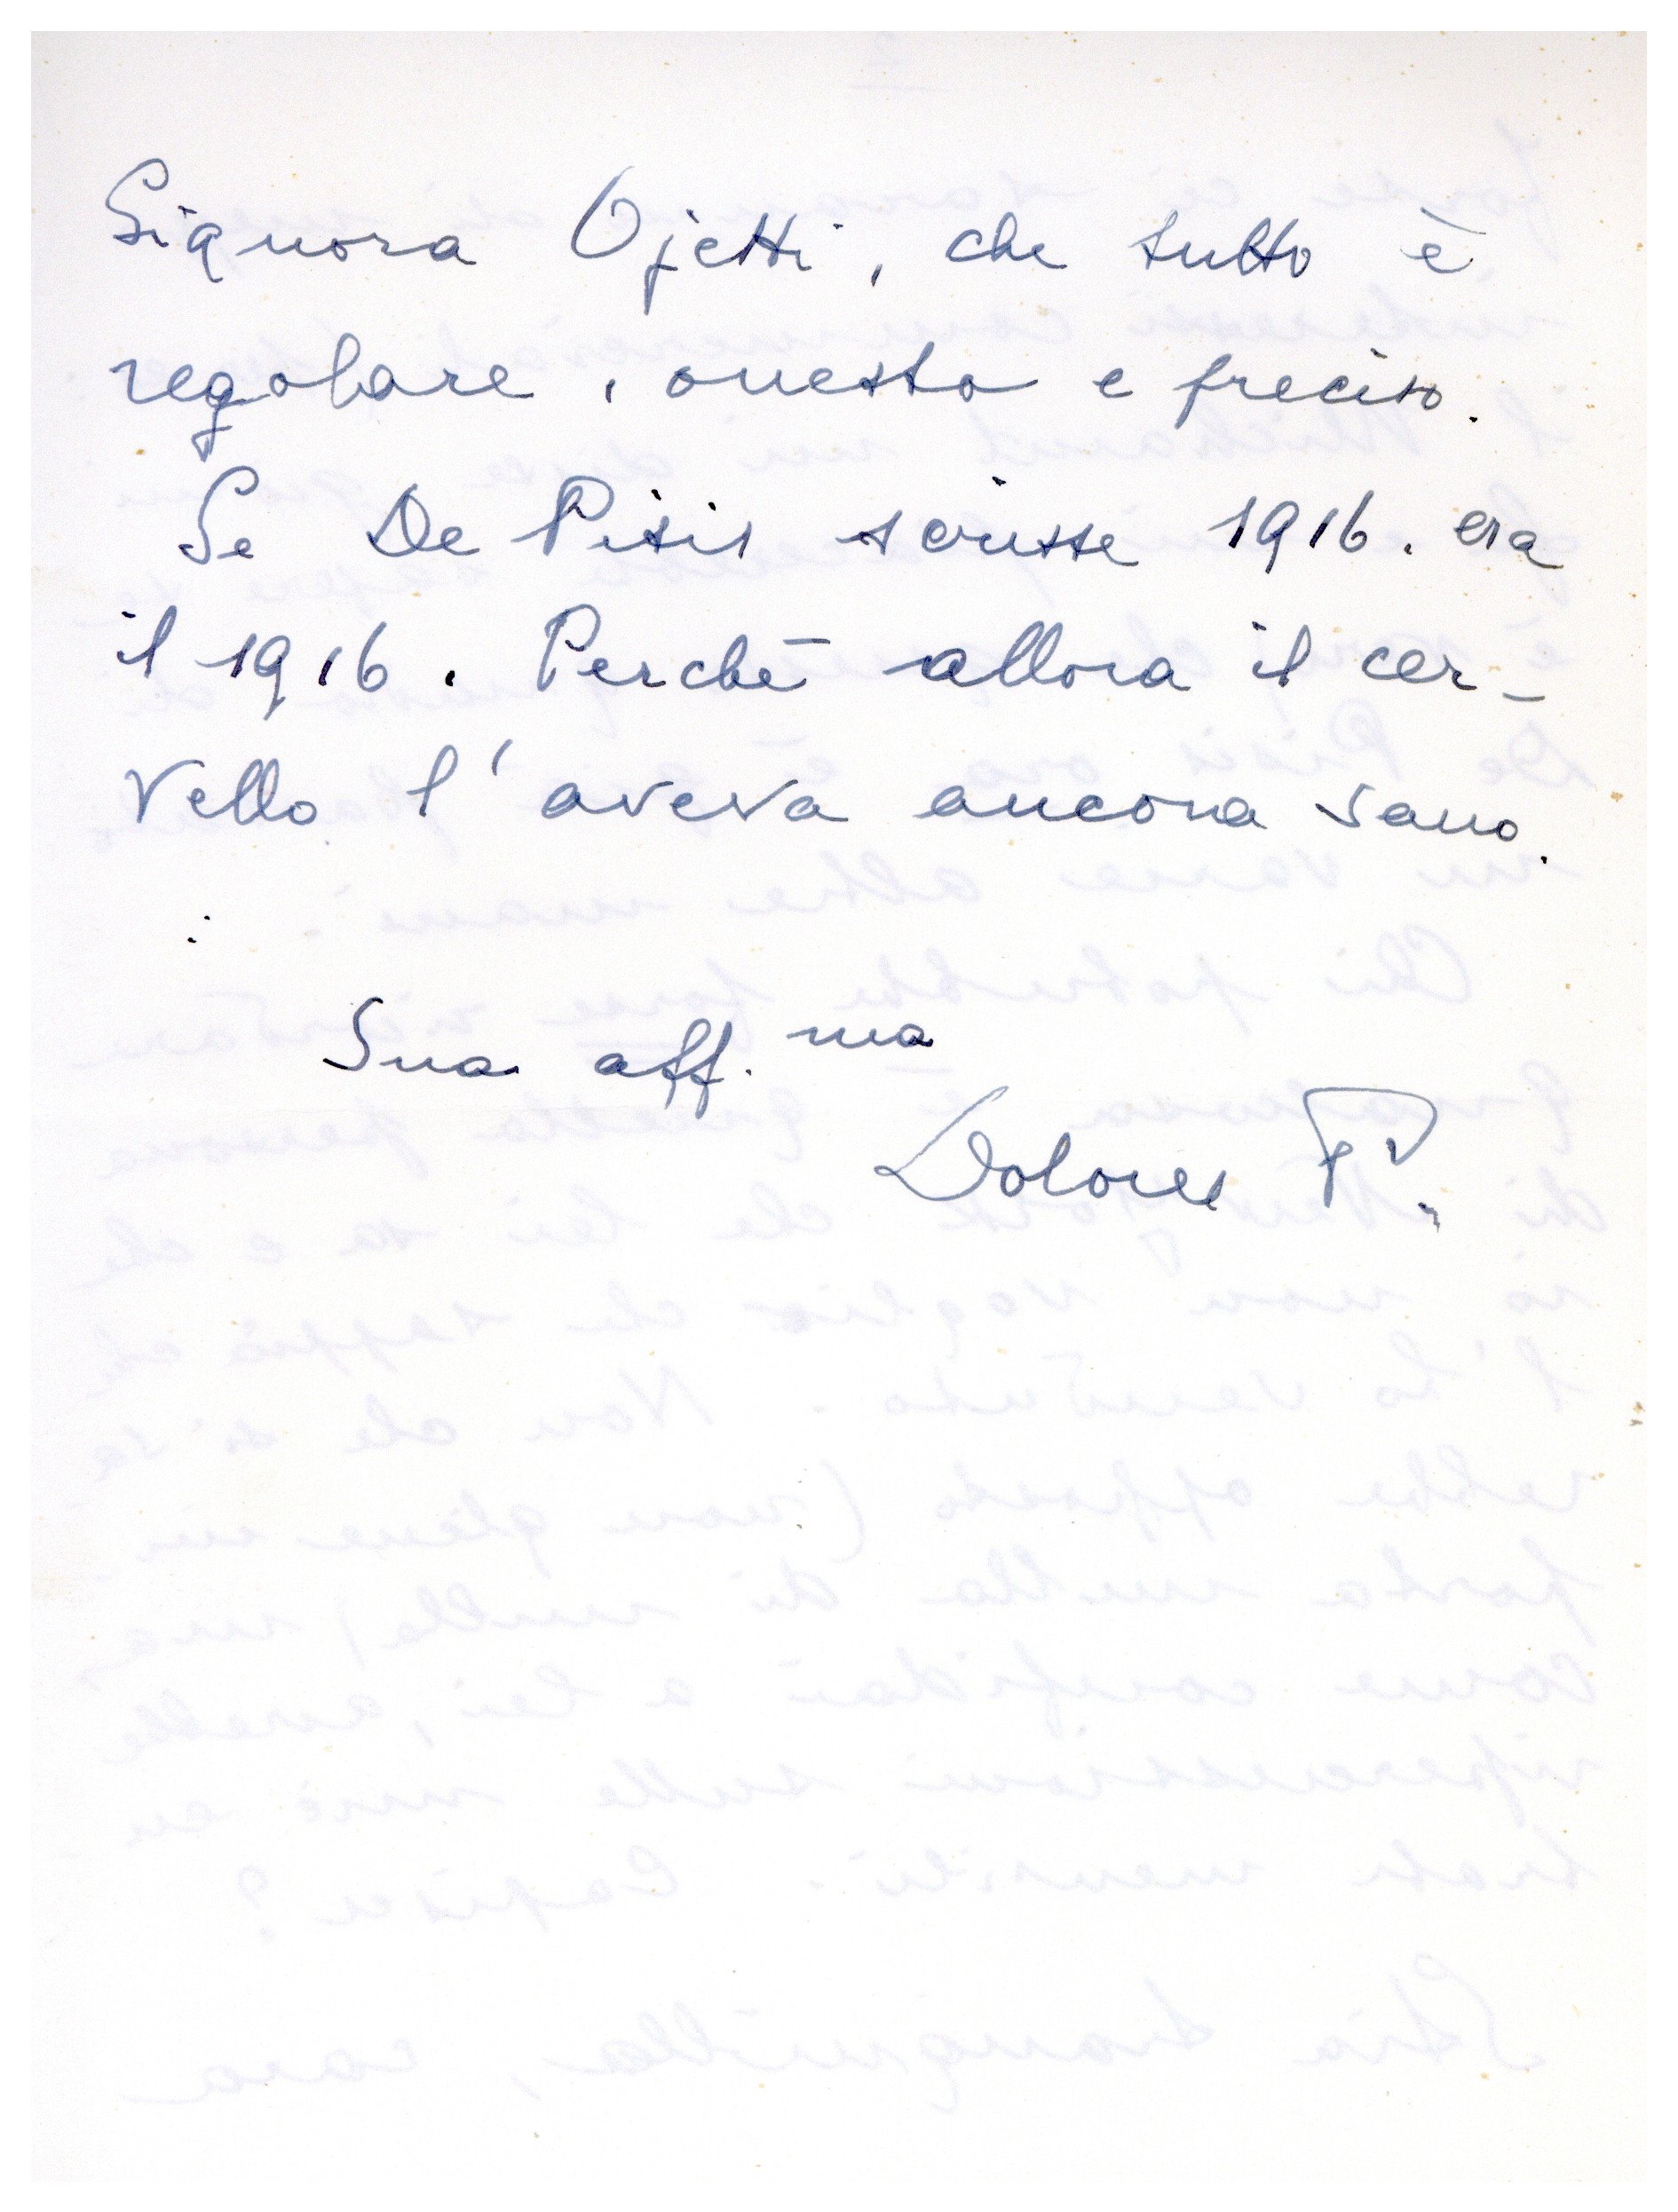 Signora Ojetti, che tutto è
regolare, onesto e preciso.
Se De Pisis scrisse 1916. era
il 1916. Perchè allora il cer-
vello l'aveva ancora sano.
Sua aff.ma
Dolores P.